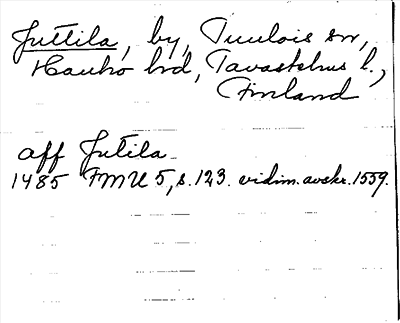 Juttila, by, Tuulois sn,
Hauho hrd, Tavastehus l.,
Finland
aff Jutila
1485 FMU 5, s. 123. vidim. avskr. 1559.